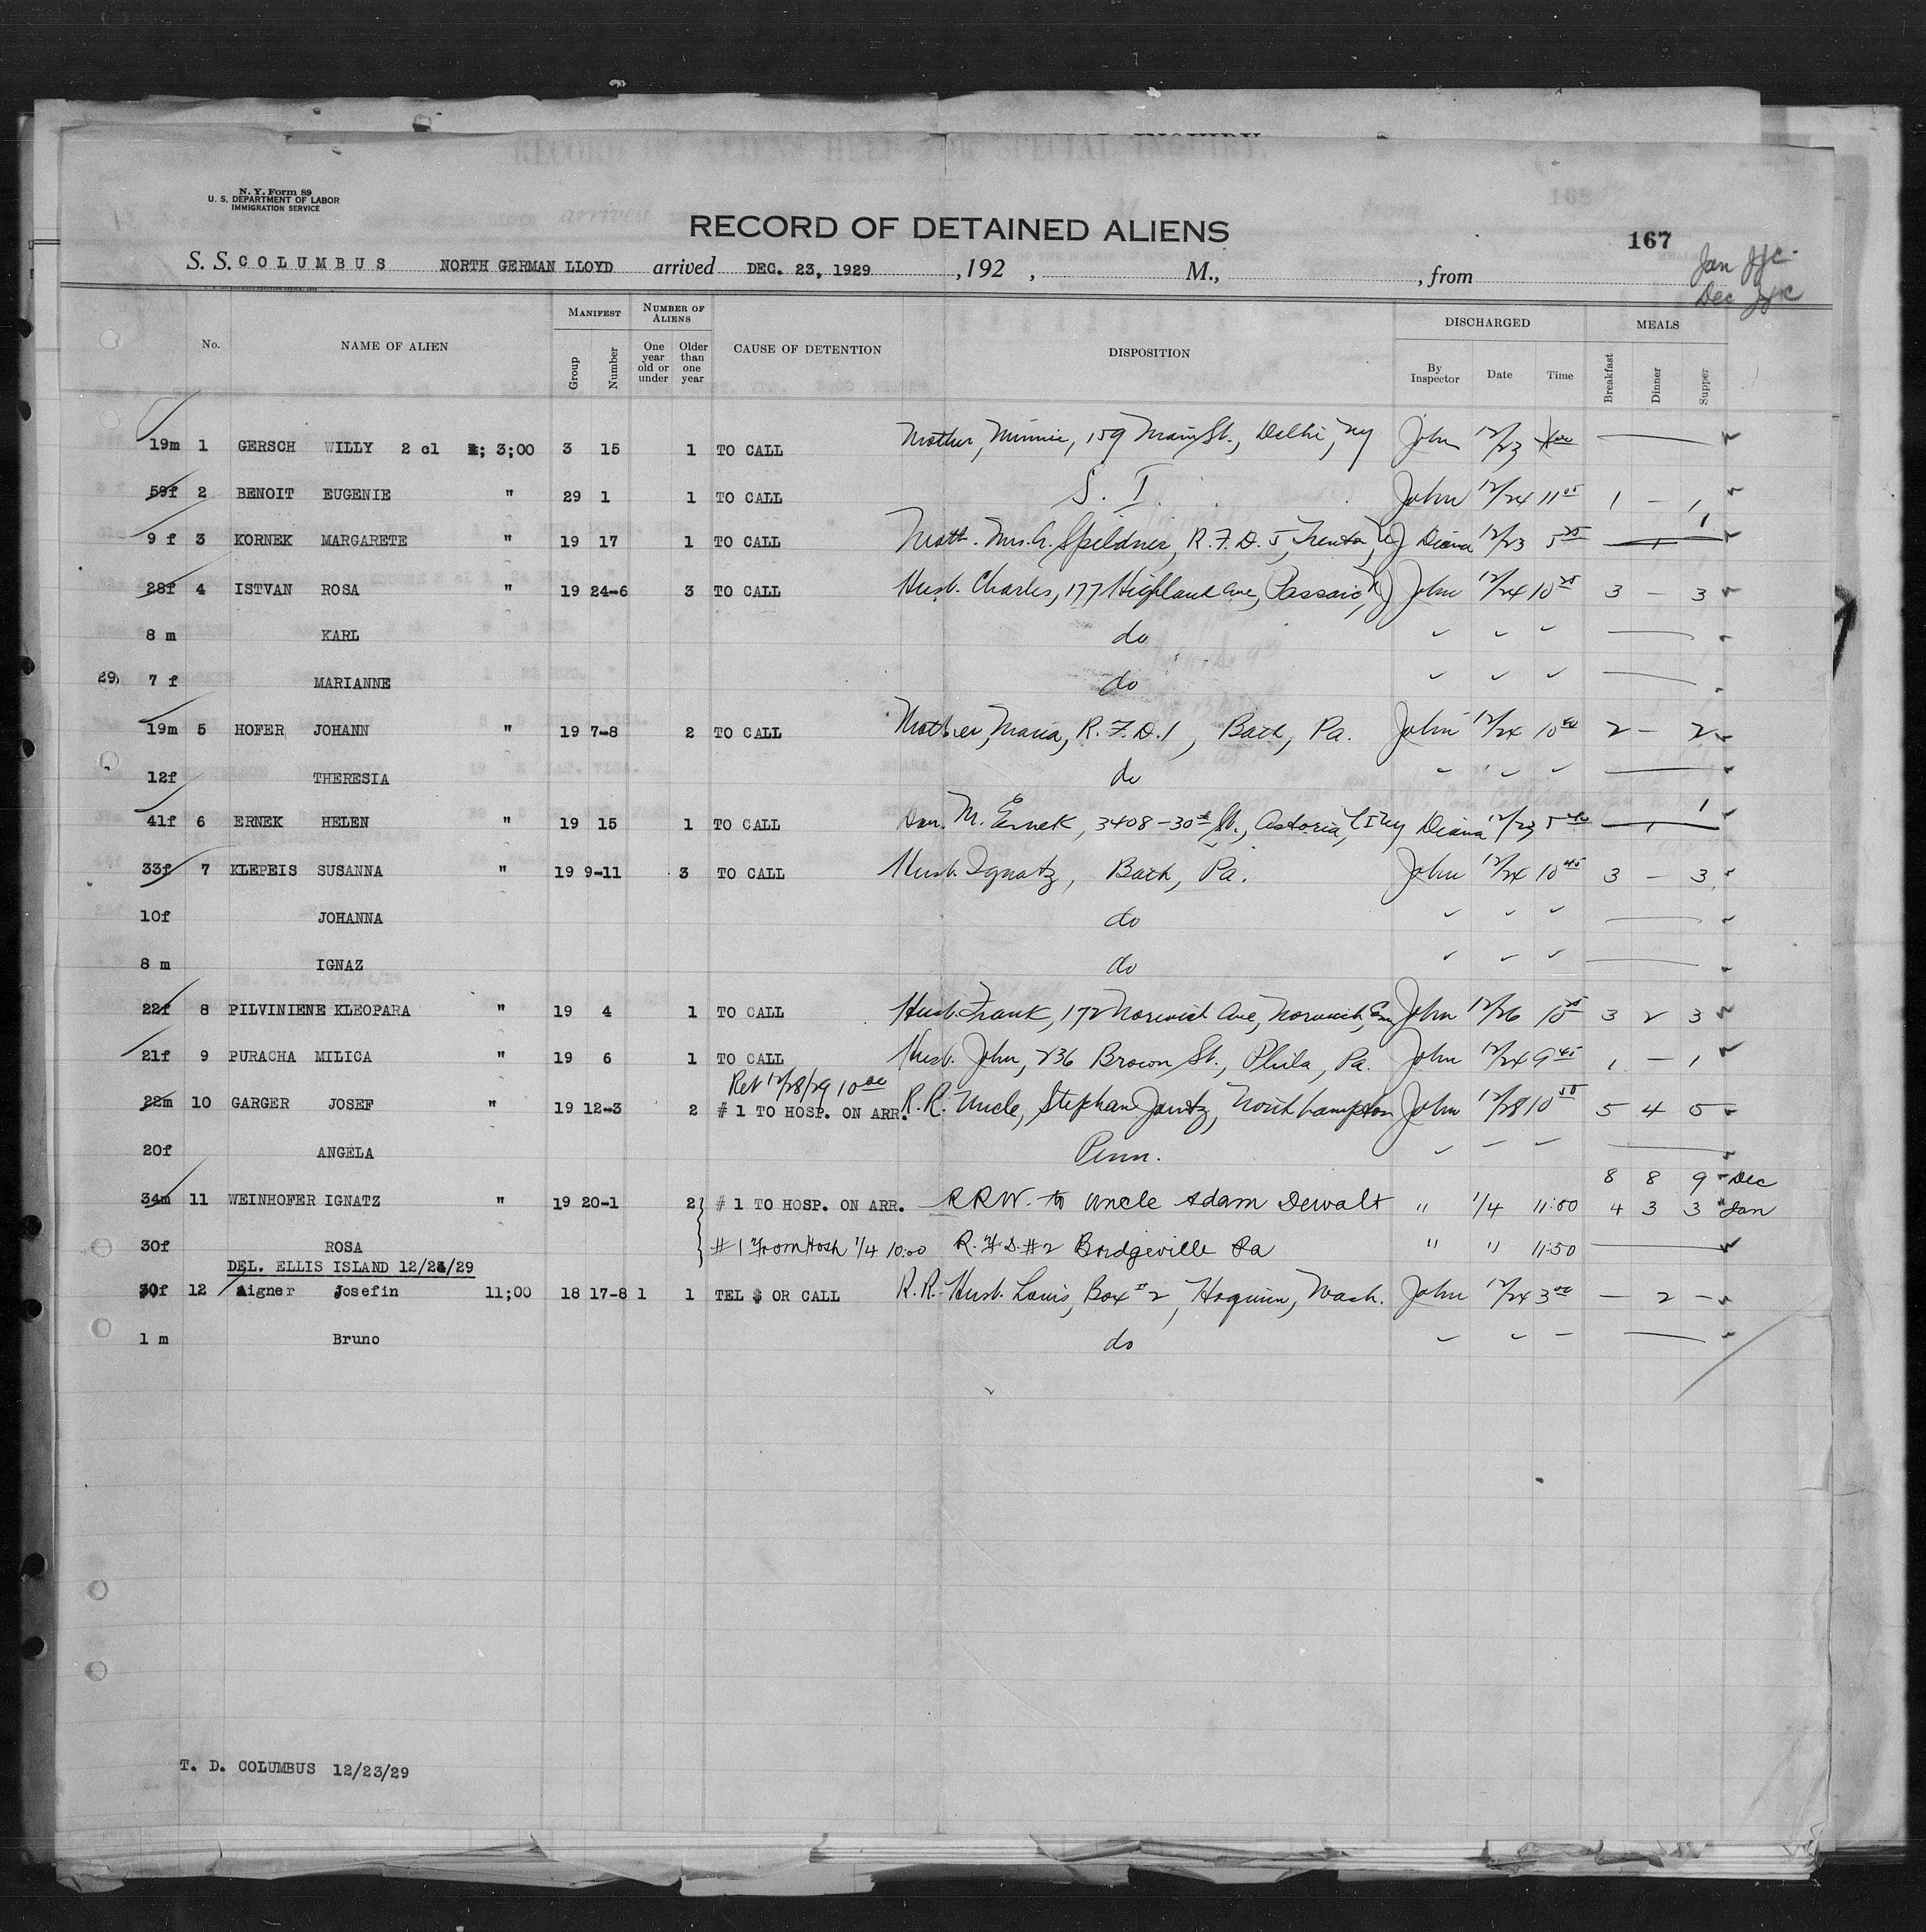 N. Y. Form 89
U. S. DEPARTMENT OF LABOR
IMMIGRATION SERVICE
RECORD OF DETAINED ALIENS
167
S. S. COLUMBUS NORTH GERMAN LLOYD arrived DEC. 23, 1929 , 192 , M., , from
Jan JJC
Dec JJC
No. NAME OF ALIEN MANIFEST Group Number NUMBER OF ALIENS One year old or under Older than one year CAUSE OF DETENTION DISPOSITION DISCHARGED By Inspector Date Time MEALS Breakfast Dinner Supper
19m 1 GERSCH WILLY 2 cl ; 3;00 3 15 1 TO CALL Mother, Minnie, 159 Main St., Delhi, NY John 12/23
59f 2 BENOIT EUGENIE " 29 1 1 TO CALL S. I. John 12/24 11 05 1 – 1
9 f 3 KORNEK MARGARETE " 19 17 1 TO CALL Moth. Mrs. A. Spildner, R.F.D. 5, Trenton, NJ Diana 12/23 5 25 1
28f 4 ISTVAN ROSA " 19 24-6 3 TO CALL Husb. Charles, 177 Highland Ave, Passaic, NJ John 12/24 10 25 3 – 3
8 m KARL do
29 7 f MARIANNE do
19m 5 HOFER JOHANN " 19 7-8 2 TO CALL Mother, Maria, R.F.D. 1, Bath, Pa. John 12/24 10 40 2 – 2
12f THERESIA do
41f 6 ERNEK HELEN " 19 15 1 TO CALL M. Ernek, 3408-30th St., Astoria, LI NY Diana 12/23 5 40 1
33f 7 KLEPEIS SUSANNA " 19 9-11 3 TO CALL Husb. Ignatz, Bath, Pa. John 12/24 10 45 3 – 3
10f JOHANNA do
8 m IGNAZ do
22f 8 PILVINIENE KLEOPARA " 19 4 1 TO CALL Husb. Frank, 172 Norwich Ave, Norwich, Conn John 12/26 10 25 3 2 3
21f 9 PURACHA MILICA " 19 6 1 TO CALL Husb. John, 236 Brown St., Phila, Pa. John 12/24 9 45 1 – 1
Ret 12/28/29 10 00
22m 10 GARGER JOSEF " 19 12-3 2 # 1 TO HOSP. ON ARR. R.R. Uncle, Stephan Jantz, Northampton John 12/28 10 50 5 4 5
20f ANGELA Penn.
8 8 9 Dec
34m 11 WEINHOFER IGNATZ " 19 20-1 2 # 1 TO HOSP. ON ARR. RRW. to Uncle Adam Dewalt " 1/4 11:50 4 3 3 Jan
30f ROSA #1 From Hosp 1/4 10:00 R.F.D. #2 Bridgeville Pa " " 11:50
DEL. ELLIS ISLAND 12/24/29
30f 12 Aigner Josefin 11;00 18 17-8 1 1 TEL $ OR CALL R.R. Husb. Louis, Box #2, Hoquim, Wash. John 12/24 3 00 – 2 –
1 m Bruno do
T. D. COLUMBUS 12/23/29